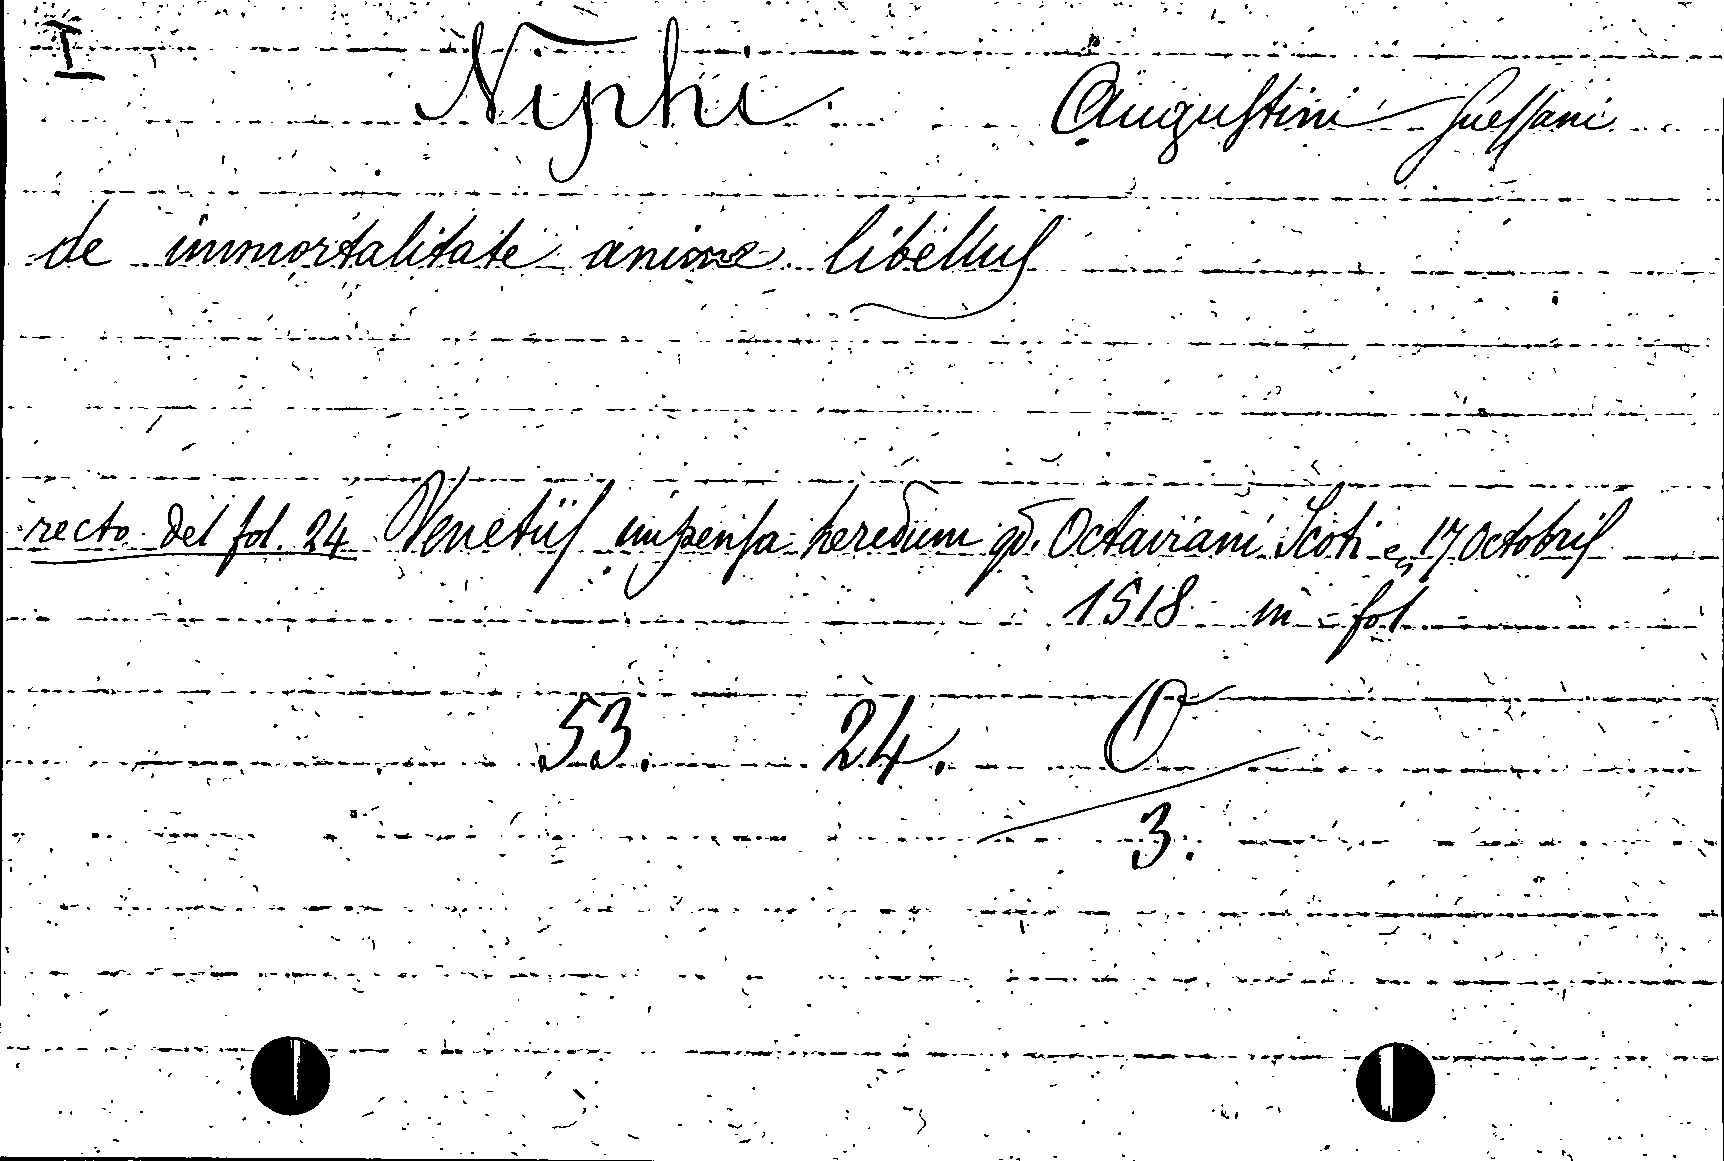 I
Niphi Augustini Suessani
de immortalitate anime libellus
recto del fol. 24 Venetiis impensa heredum qd. Octaviani Scoti 17 Octobris
1518 in fol
53. 24. O
3.